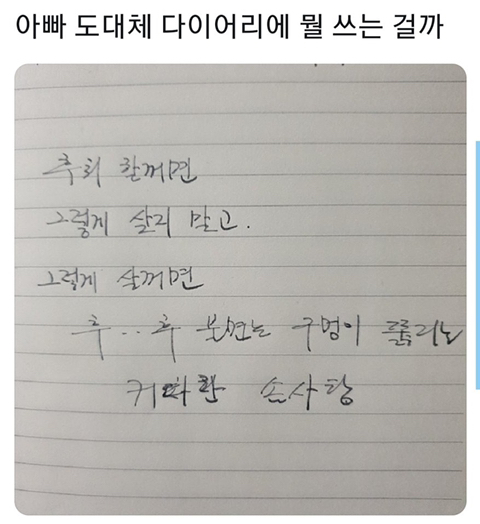 아빠 도대체 다이어리에 뭘 쓰는 걸까
후회 할꺼면
그렇게 살지 말고.
그렇게 살꺼면
후...후 불면는 구멍이 뚫리는
커다란 솜사탕